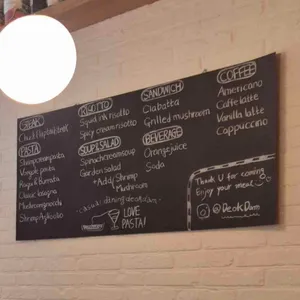 STEAK
PASTA
Shrimp cream pasta
Ragu & Burrata
Classic lasagna
Shrimp Aglio olio
RISOTTO
Squid ink risotto
Spicy cream risotto
SOUP & SALAD
Spinach cream soup
Garden salad
+ Add Shrimp
Mushroom
LOVE
PASTA!
SANDWICH
Ciabatta
Grilled mushroom
BEVERAGE
Orange juice
Soda
COFFEE
Americano
Caffe latte
Vanilla latte
Cappuccino
Thank U for coming
Enjoy your meal
@DeokDam